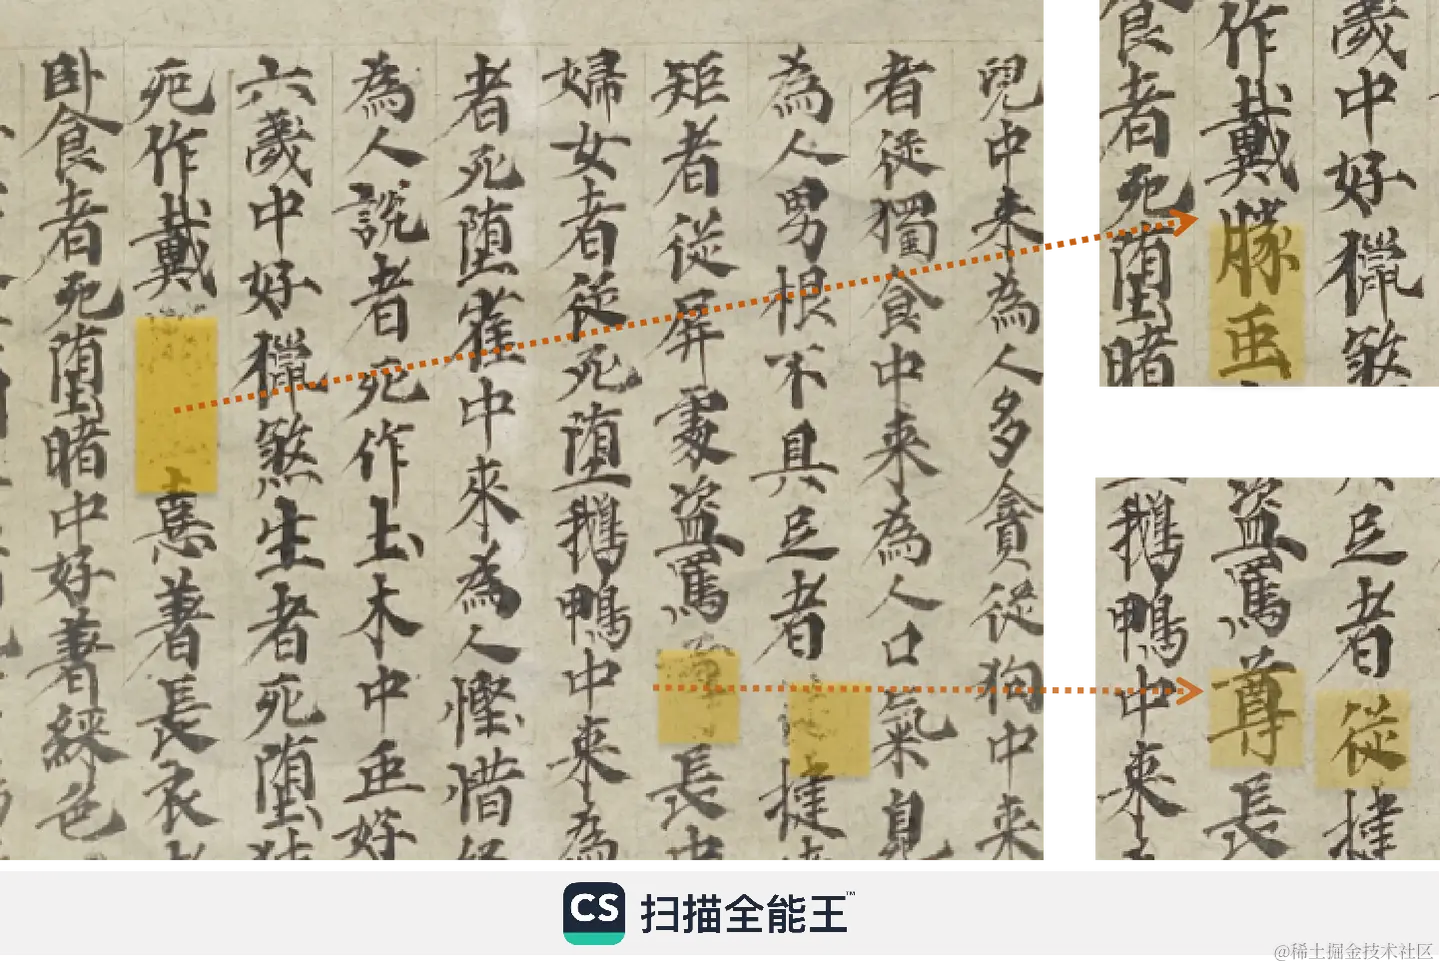 兒中來為人多貪從狗中來
者從獨食中來為人口氣臭
為人男根不具足者從揵
矩者從屏處盜罵長中
婦女者從死墮鵝鴨中來為
者死墮雀中來為人慳惜
為人說者死作土木中虫好
六歲中好獵煞生者死墮
死作戴憙著長衣
卧食者死墮睹中好著綵色
歲中好獵煞
作戴勝虫
食者死墮睹
足者從揵
盜罵尊長
鵝鴨中來
CS 扫描全能王™
@稀土掘金技术社区